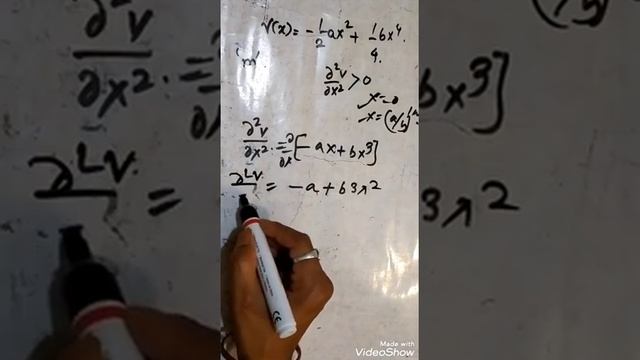 V(x) = -1/2 ax² + 1/4 bx⁴.
'm'
∂²V/∂x² > 0
x = 0
x = (a/b)
∂²V/∂x² = ∂/∂x [-ax + bx³]
∂²V = -a + b3x²
Made with
VideoShow